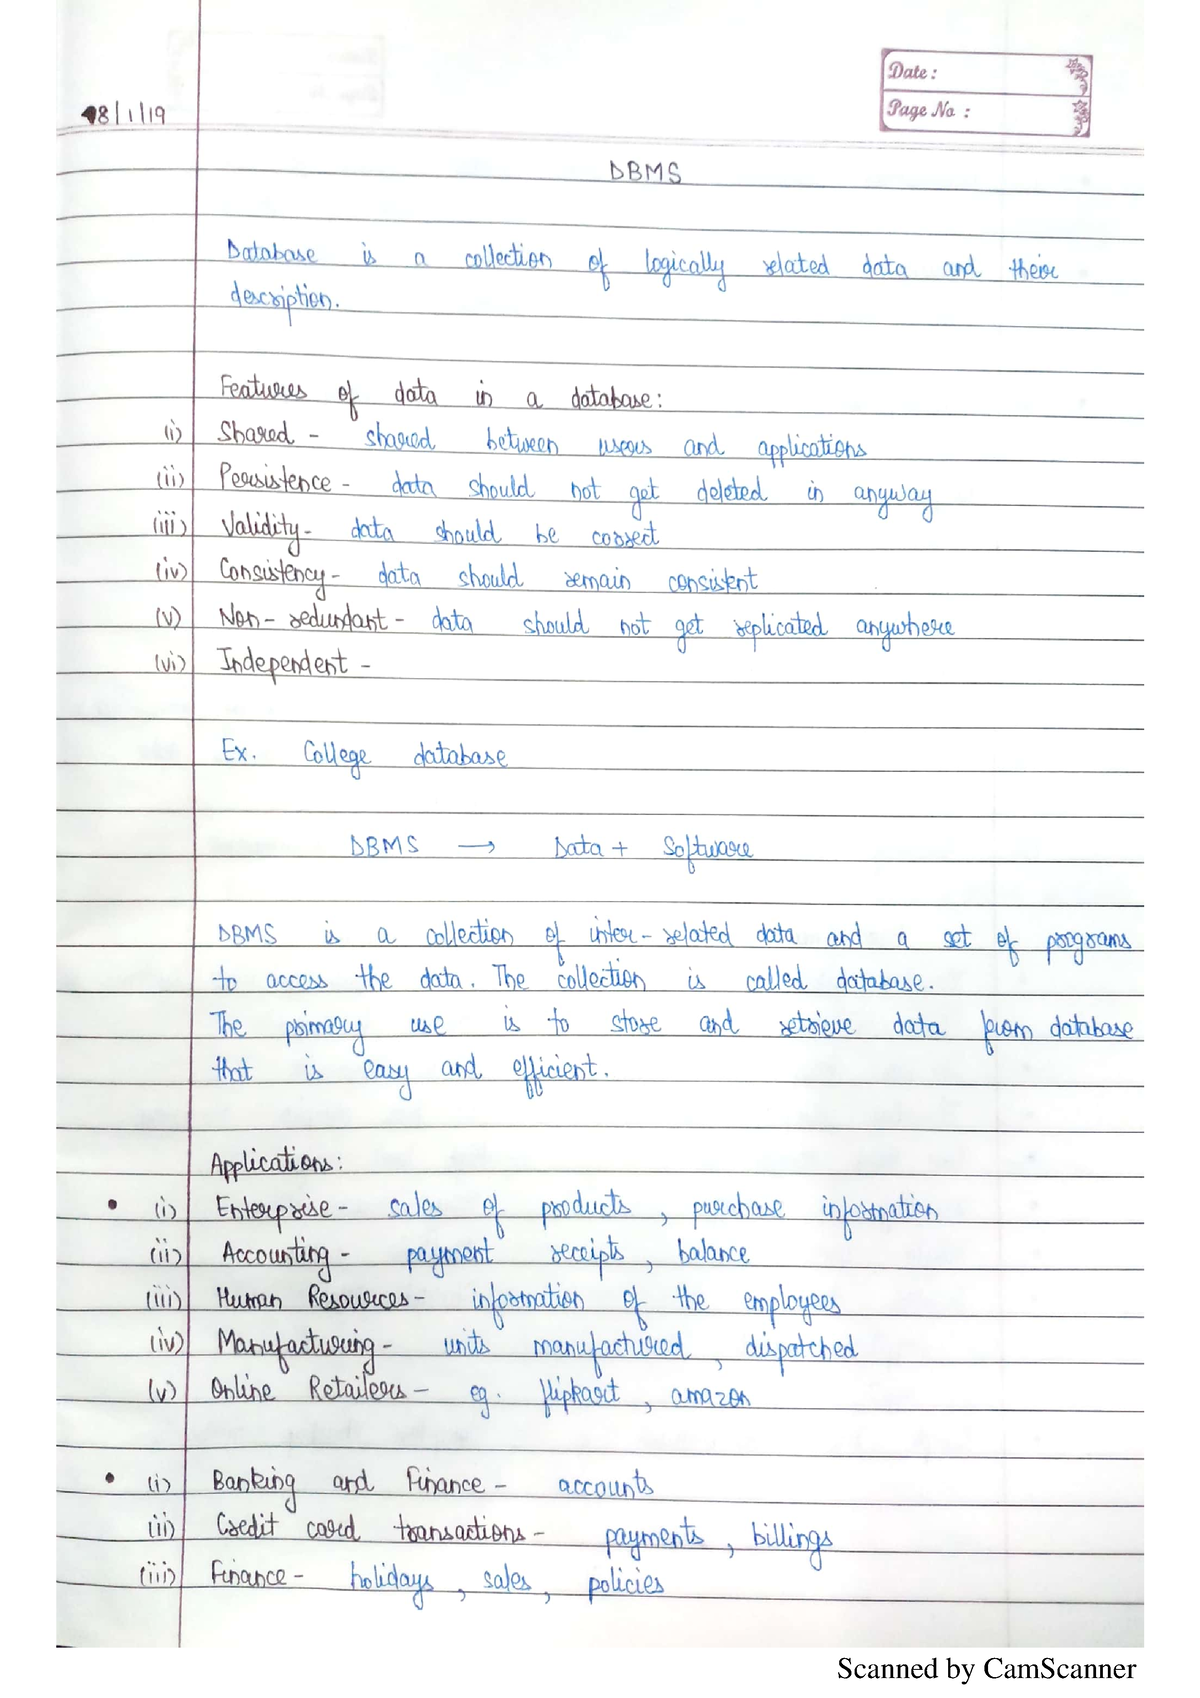 Date :
Page No :
8/1/19
DBMS
Database is a collection of logically related data and their
description.
Features of data in a database:
(i) Shared - shared between users and applications
(ii) Persistence - data should not get deleted in anyway
(iii) Validity - data should be correct
(iv) Consistency - data should remain consistent
(v) Non-redundant - data should not get replicated anywhere
(vi) Independent -
Ex. College database
DBMS → Data + Software
DBMS is a collection of inter-related data and a set of programs
to access the data. The collection is called database.
The primary use is to store and retrieve data from database
that is easy and efficient.
Applications:
• (i) Enterprise - sales of products, purchase information
(ii) Accounting - payment receipts, balance
(iii) Human Resources - information of the employees
(iv) Manufacturing - units manufactured, dispatched
(v) Online Retailers - eg. flipkart, amazon
• (i) Banking and Finance - accounts
(ii) Credit card transactions - payments, billings
(iii) Finance - holidays, sales, policies
Scanned by CamScanner